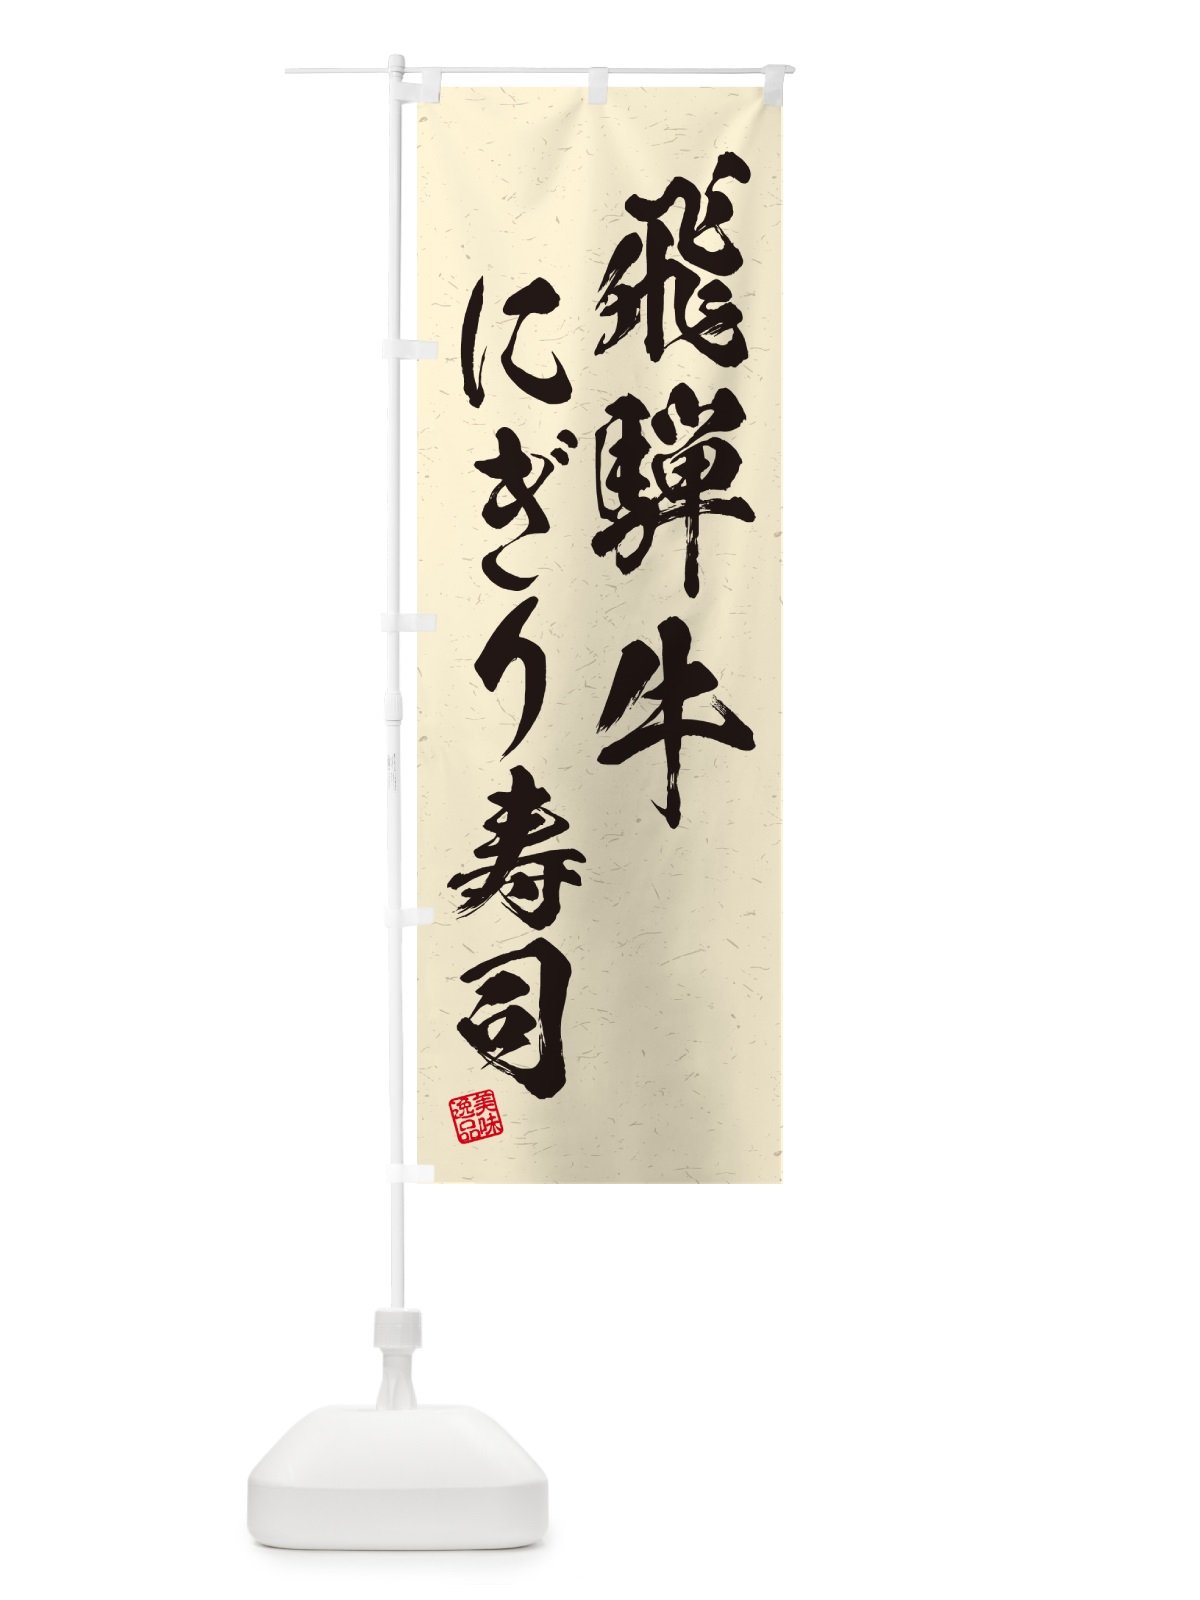 飛騨牛
にぎり寿司
美味
逸品